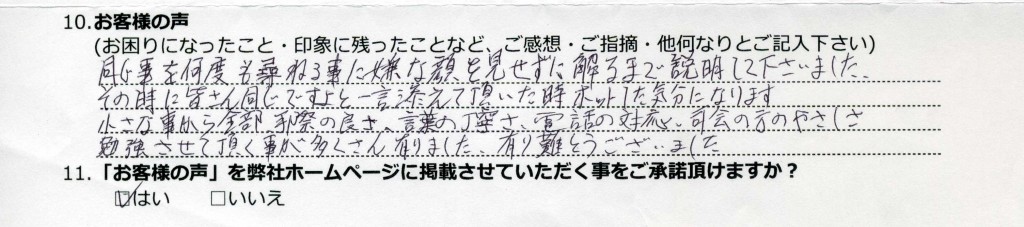 10.お客様の声
(お困りになったこと・印象に残ったことなど、ご感想・ご指摘・他何なりとご記入下さい)
同じ事を何度も尋ねる事に嫌な顔を見せずに解るまで説明して下さいました、
その時に皆さん同じですよと一言添えて頂いた時ホットした気分になります
小さな事から全部 手際の良さ、言葉の丁寧さ、電話の対応、司会の方のやさしさ
勉強させて頂く事が多くさん有りました、有り難とうございました
11.「お客様の声」を弊社ホームページに掲載させていただく事をご承諾頂けますか？
☑はい □いいえ